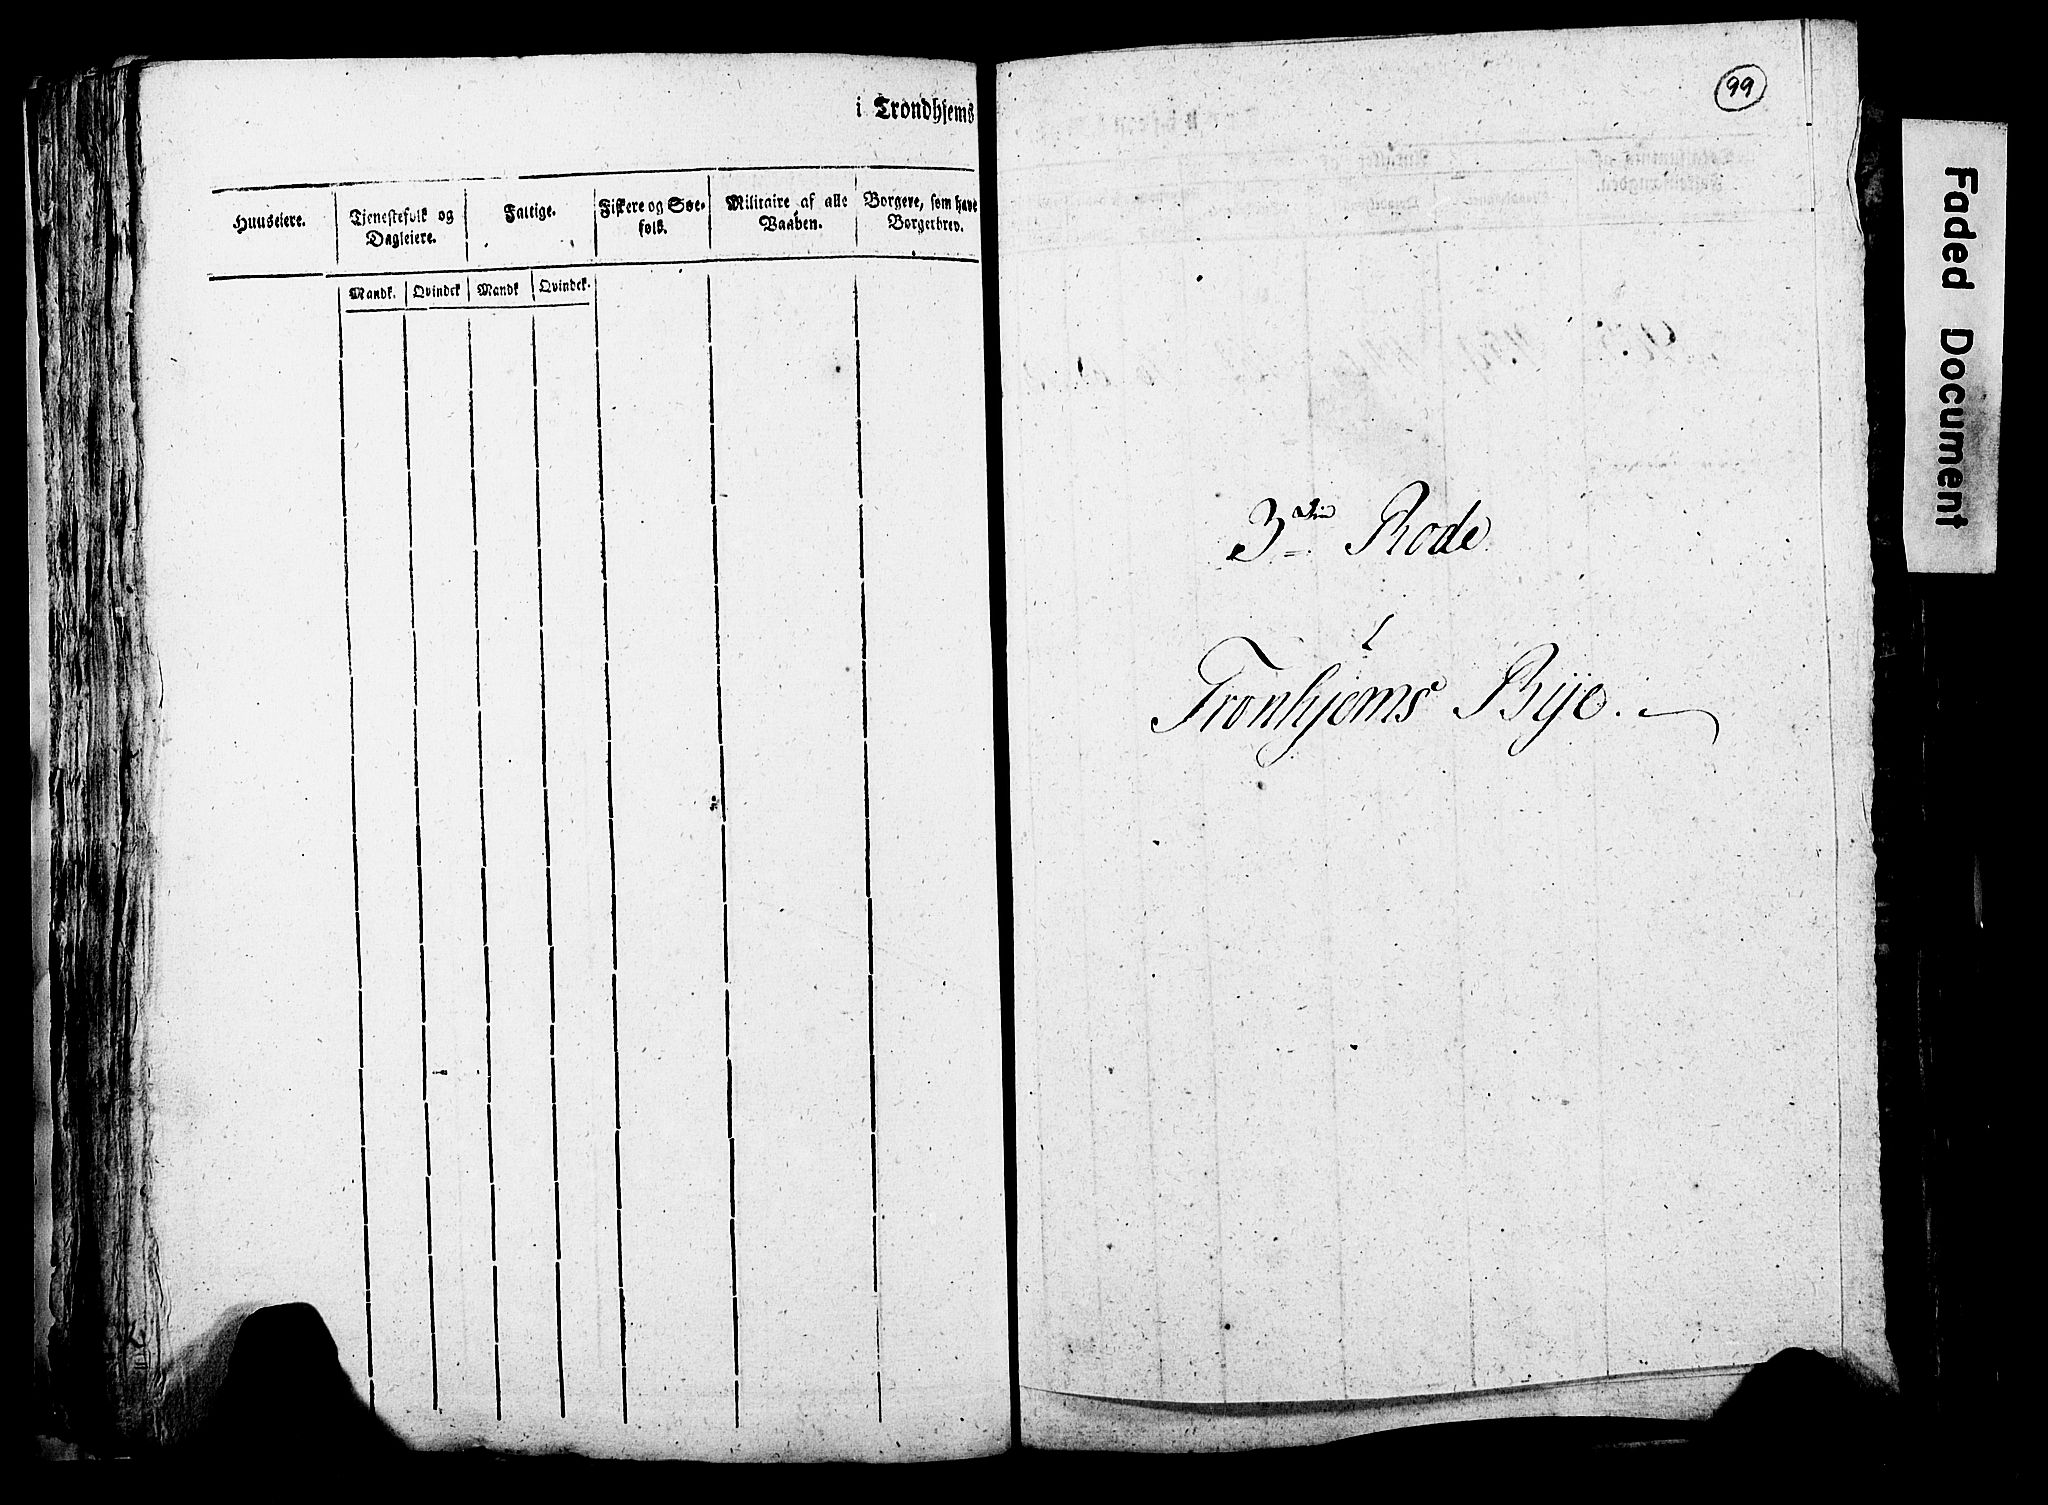 i Trondhjems
Huuseiere.
Tjenestefolk og
Dagleiere.
Fattige.
Fiskere og Søe-
folk.
Militaire af alle
Vaaben.
Borgere, som have
Borgerbrev.
Mandk. Qvindek Mandk Qvindek.
99
3die Rode
i
Tronhjems Bye.
Faded Document